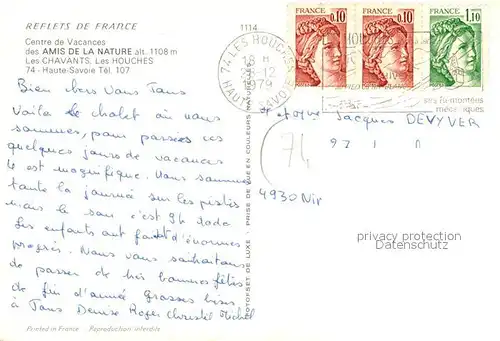 REFLETS DE FRANCE
Centre de Vacances
des AMIS DE LA NATURE alt. 1108 m
Les CHAVANTS, Les HOUCHES
74 - Haute-Savoie Tél. 107
Bien chers Vous Tous
Voila le chalet où nous
sommes, pour passées ces
quelques jours de vacances
le est magnifique. Nous sommes
toute la journée sur les pistes
mais le soir c'est
Les enfants ont fait d'énormes
progrés. Nous vous souhaitons
de passer de très bonnes fêtes
de fin d'année Grosses bises
à Tous Denise Roger Christel Michel
Printed in France Reproduction interdite
1114
PRISE DE VUE EN COULEURS NATURELLES
74 LES HOUCHES
-12
1979
HAUTE SAVOIE
FRANCE 0,10
FRANCE 0,10
FRANCE 1,10
ses remontées
mécaniques
Jacques DEVYVER
74
4930
privacy protection
Datenschutz